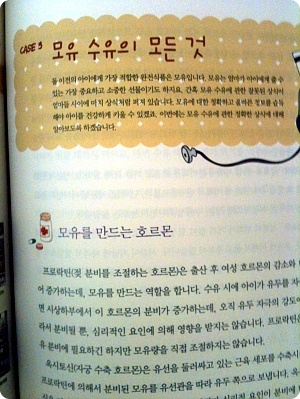 CASE 3 모유 수유의 모든 것
돌 이전의 아이에게 가장 적합한 완전식품은 모유입니다. 모유는 엄마가 아이에게 줄 수
있는 가장 중요하고 소중한 선물이기도 하지요. 간혹 모유 수유에 관한 잘못된 상식이
엄마들 사이에 마치 상식처럼 퍼져 있습니다. 모유에 대한 정확하고 올바른 정보를 습득
해야 아이를 건강하게 키울 수 있겠죠. 이번에는 모유 수유에 관한 정확한 상식에 대해
알아보도록 하겠습니다.
모유를 만드는 호르몬
프로락틴(젖 분비를 조절하는 호르몬)은 출산 후 여성 호르몬의 감소와
어 증가하는데, 모유를 만드는 역할을 합니다. 수유 시에 아이가 유두를 자
면 시상하부에서 이 호르몬의 분비가 증가하는데, 오직 유두 자극의 강도에
라서 분비될 뿐, 심리적인 요인에 의해 영향을 받지는 않습니다. 프로락틴은
유 분비에 필요하긴 하지만 모유량을 직접 조절하지는 않습니다.
옥시토신(자궁 수축 호르몬)은 유선을 둘러싸고 있는 근육 세포를 수축시
프로락틴에 의해서 분비된 모유를 유선관을 따라 유두 쪽으로 보냅니다. 옥시
심리적 요인이 분비에